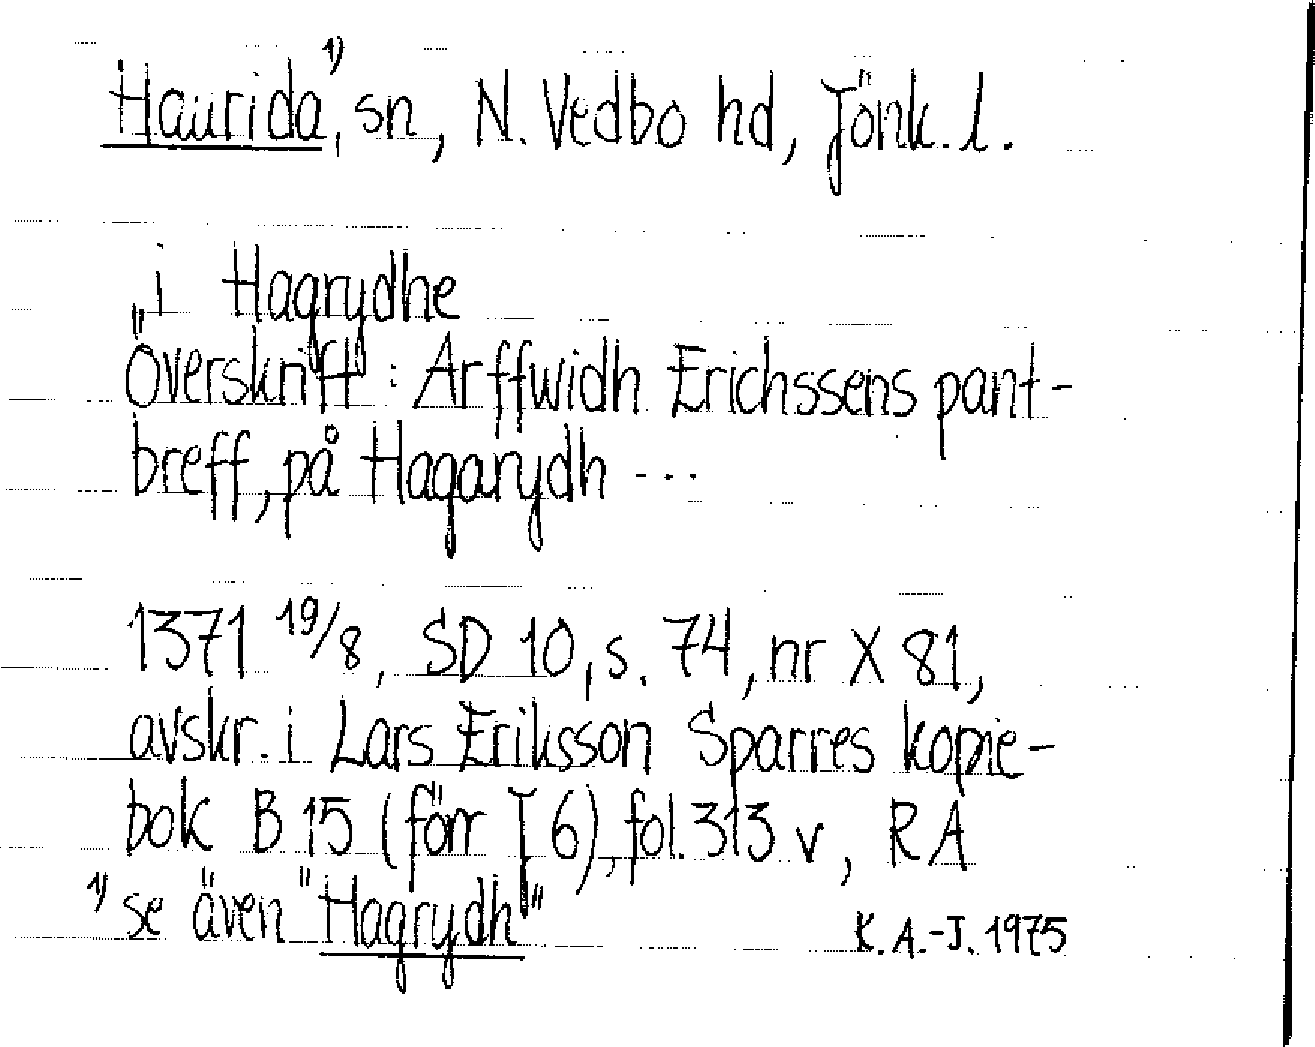 Haurida¹⁾, sn, N. Vedbo hd, Jönk. l.
i Hagrydhe
Överskrift: Arffwidh Erichssens pant-
breff, på Hagarydh ...
1371 19/8, SD 10, s. 74, nr X 81,
avskr. i Lars Eriksson Sparres kopie-
bok B 15 (förr I 6), fol. 313 v, RA
¹⁾ se även "Hagrydh"
K. A.-J. 1975